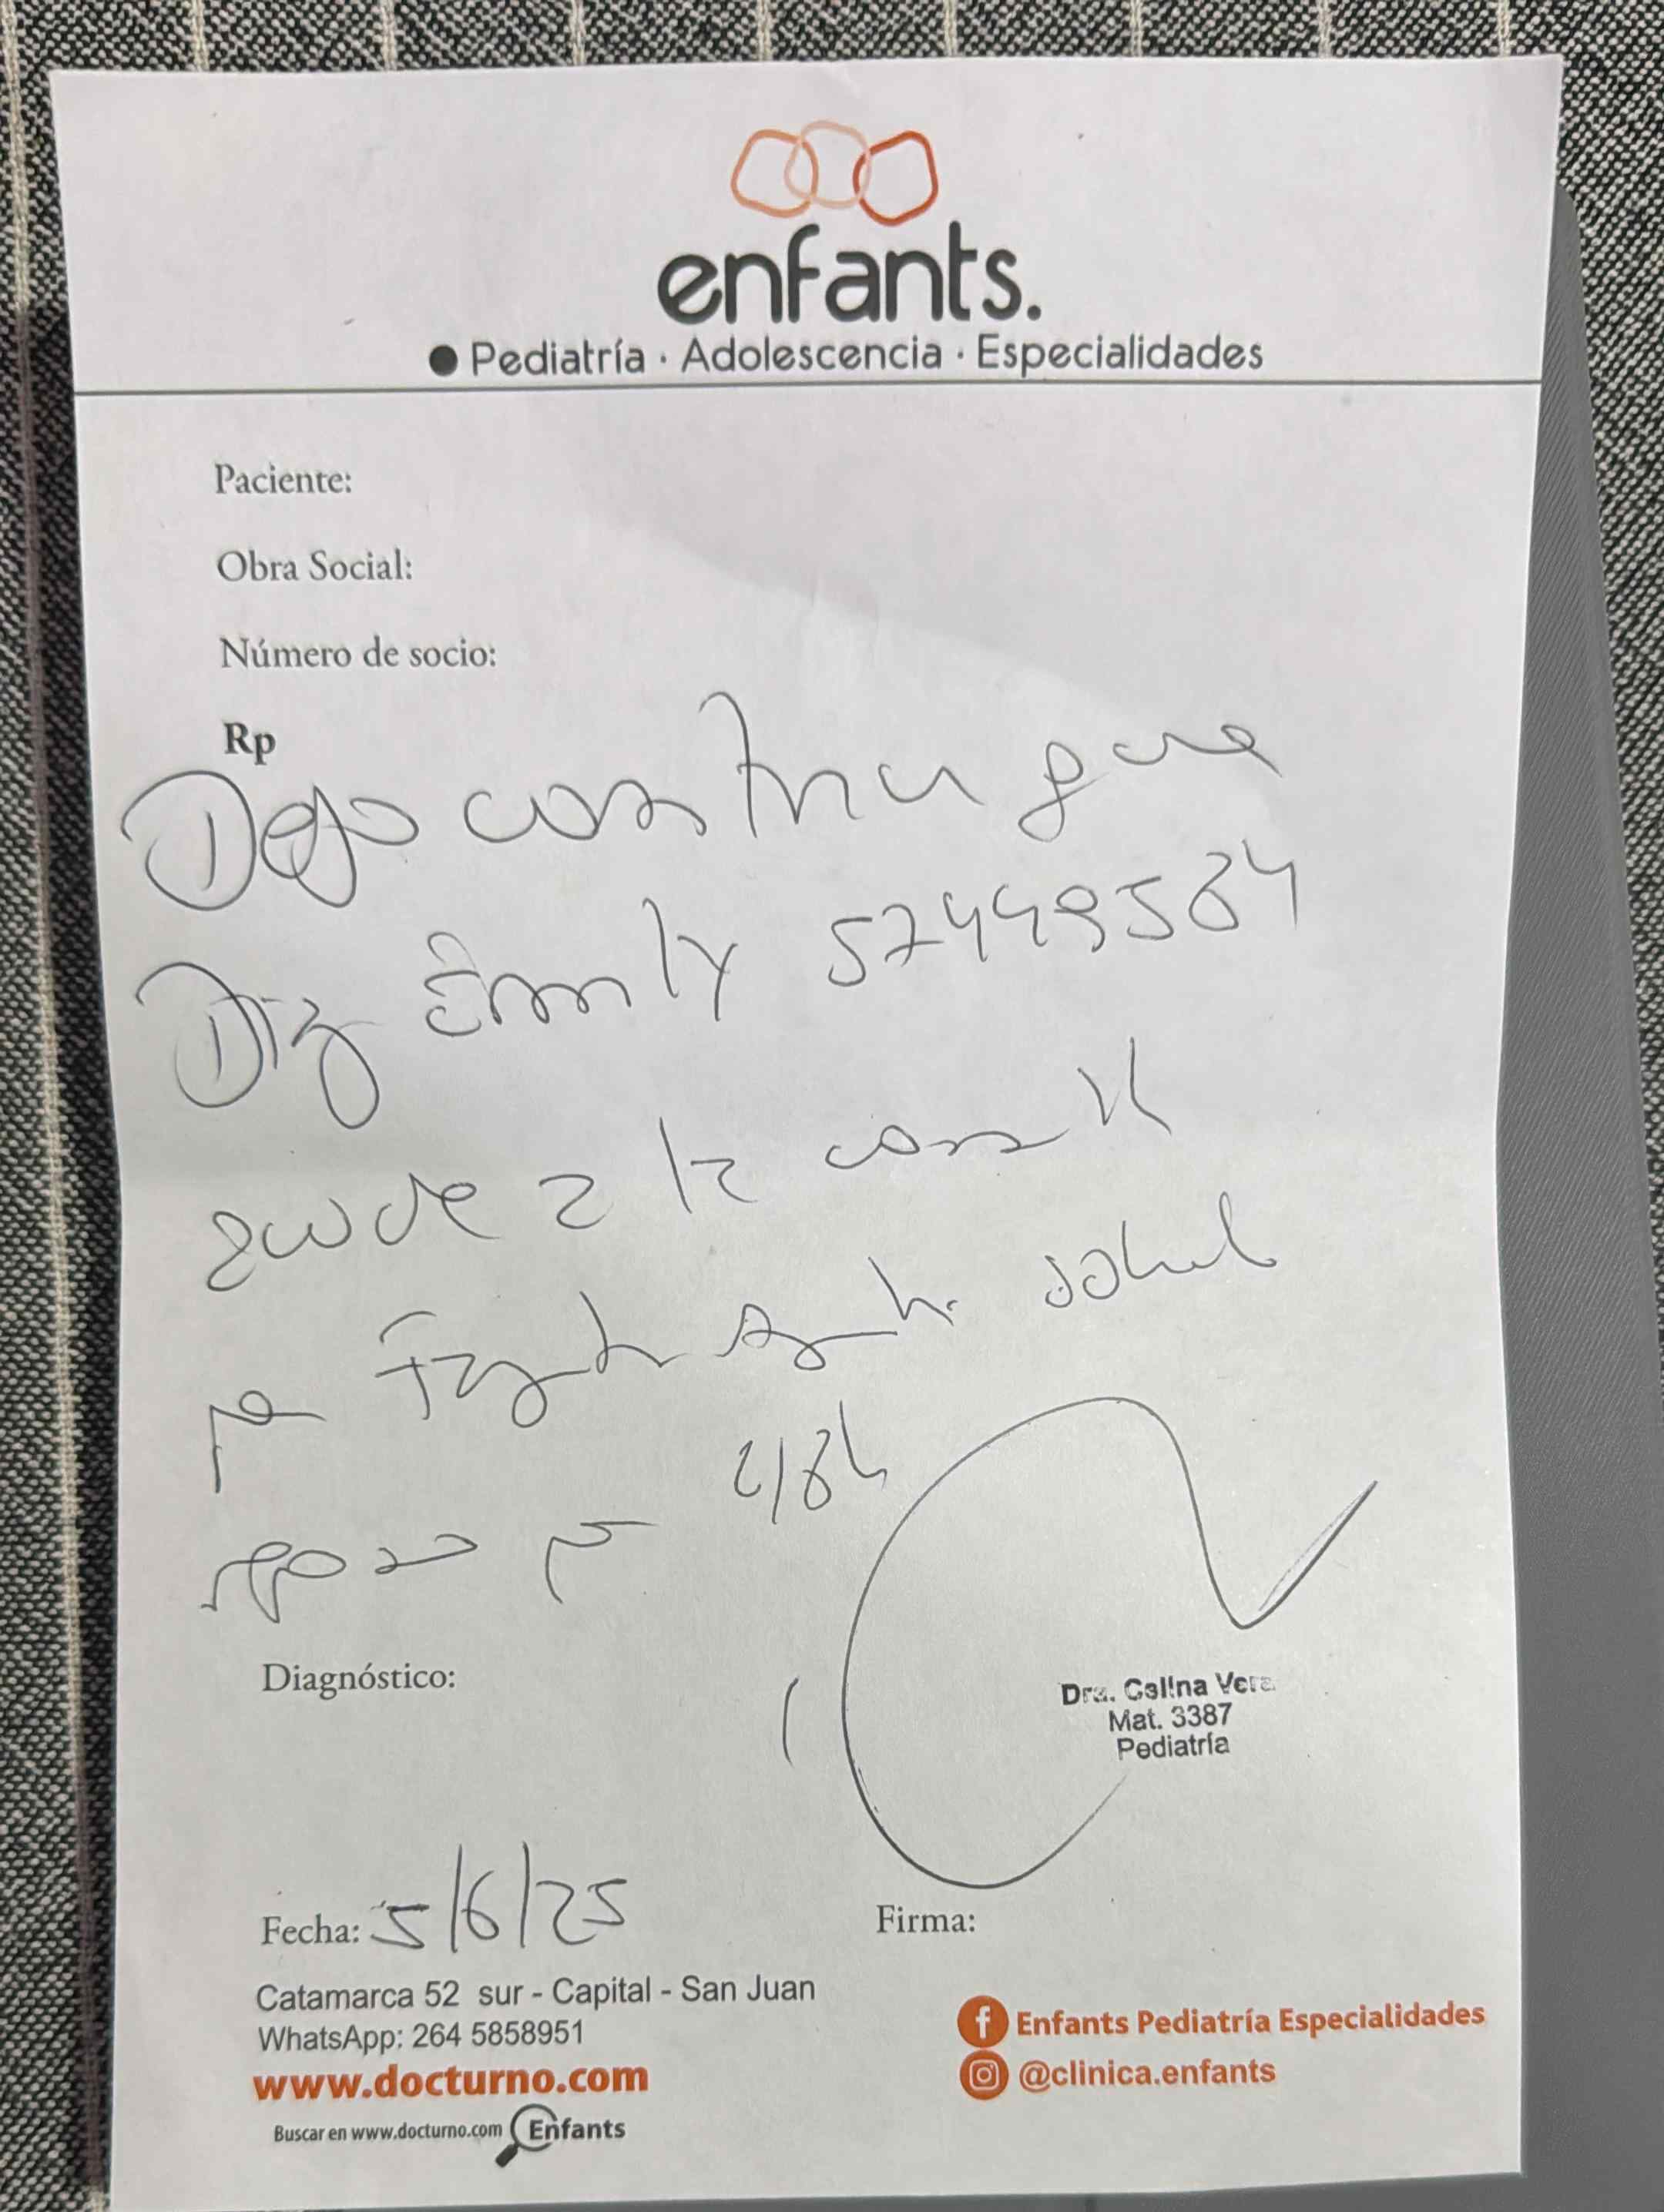 enfants.
Pediatría · Adolescencia · Especialidades
Paciente:
Obra Social:
Número de socio:
Rp
Dejo constancia que
Diaz Emily 57449584
acude a la consulta
por
reposo por 48h
Diagnóstico:
Dra. Celina Vera
Mat. 3387
Pediatría
Fecha: 5/6/25
Firma:
Catamarca 52 sur - Capital - San Juan
WhatsApp: 264 5858951
www.docturno.com
Buscar en www.docturno.com Enfants
Enfants Pediatría Especialidades
@clinica.enfants